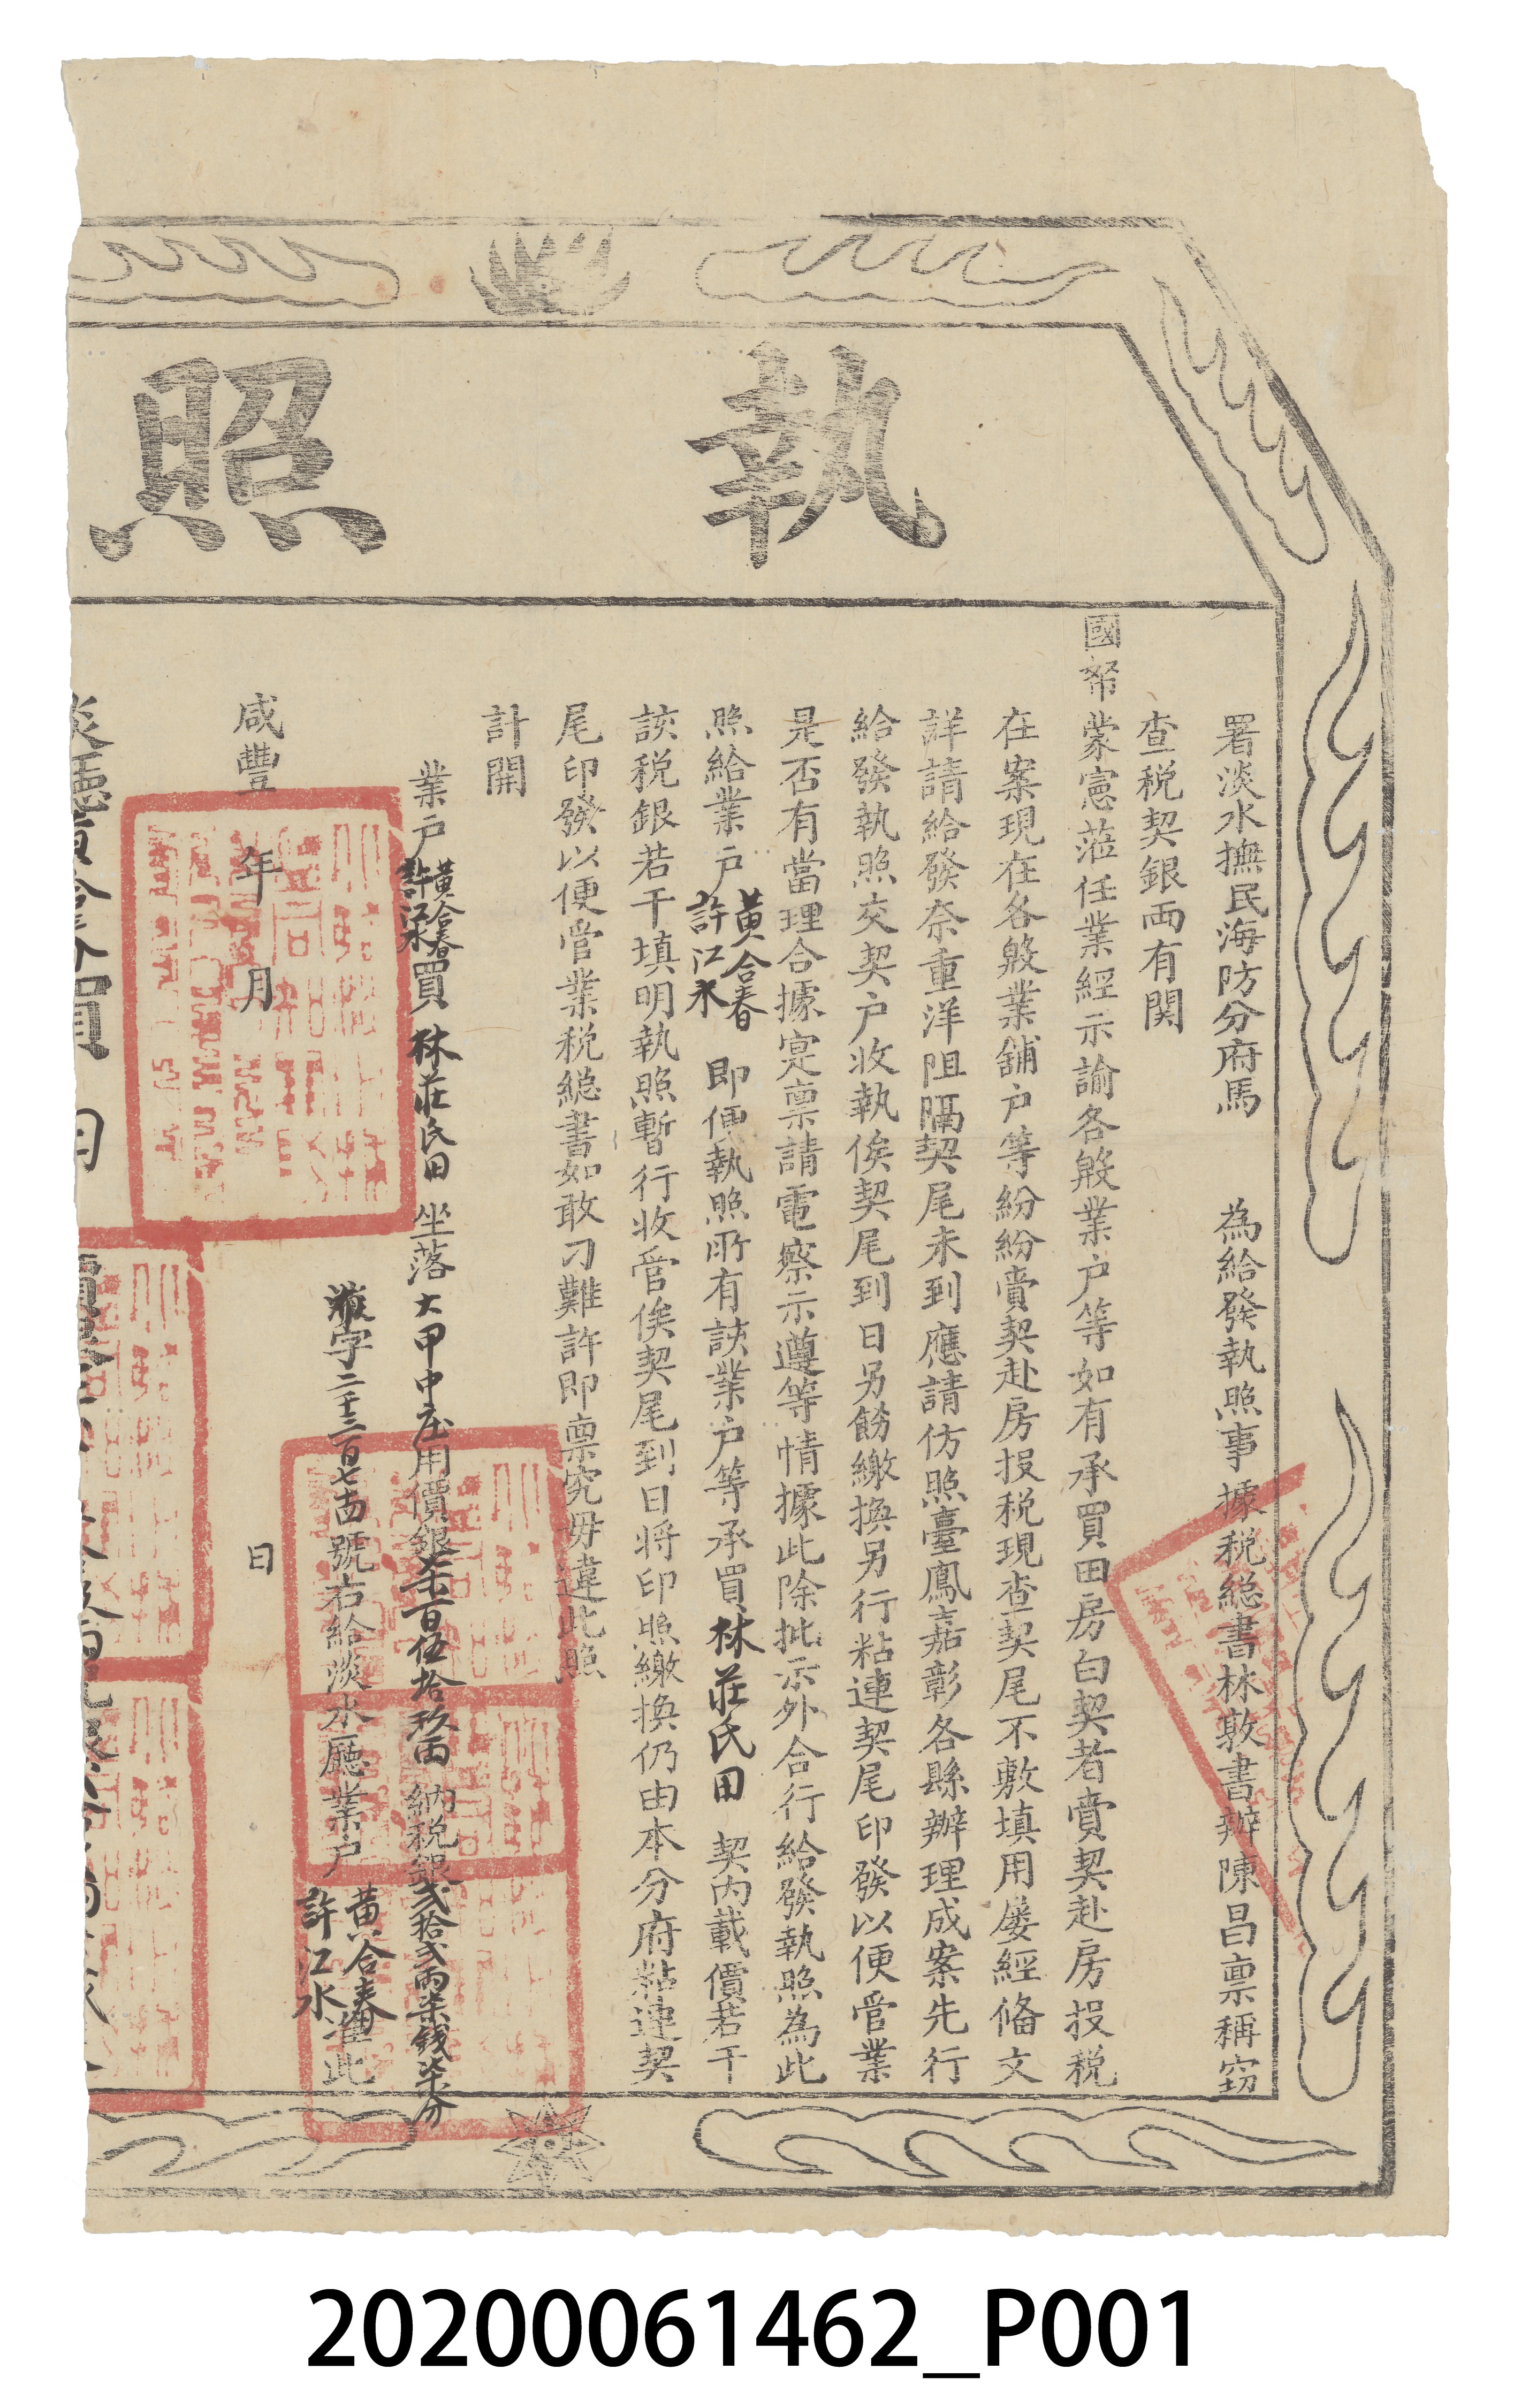 執照
署淡水撫民海防分府馬 為給發執照事據税総書林敦書辦陳昌禀稱窃
查税契銀両有関
國帑蒙憲蒞任業經示諭各殷業户等如有承買田房白契者賫契赴房投税
在案現在各殷業舖户等紛紛賫契赴房投税現查契尾不敷填用屡經俻文
詳請給發奈重洋阻隔契尾未到應請仿照臺鳳嘉彰各縣辦理成案先行
給發執照交契户收執俟契尾到日另飭繳換另行粘連契尾印發以便管業
是否有當理合據寔禀請電察示遵等情據此除批示外合行給發執照為此
照給業户黃合春許江水 即便執照所有該業户等承買林莊氏田 契内載價若干
該税銀若干填明執照暫行收管俟契尾到日将印照繳換仍由本分府粘連契
尾印發以便管業税総書如敢刁難許即禀究毋違此照
計開
業户黃合春許江水買 林莊氏田 坐落大甲中庄用價銀壬百伍拾玖両 納税銀弍拾弍両柒錢柒分
淡字二千三百七十四號右給淡水廳業户黃合春許江水准此
咸豐 年 月 日
20200061462_P001